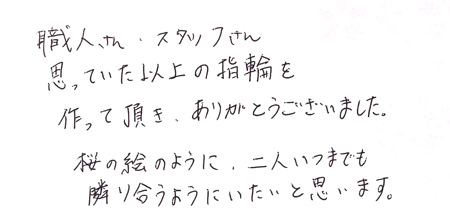 職人さん・スタッフさん
思っていた以上の指輪を
作って頂き、ありがとうございました。
桜の絵のように、二人いつまでも
隣り合うようにいたいと思います。